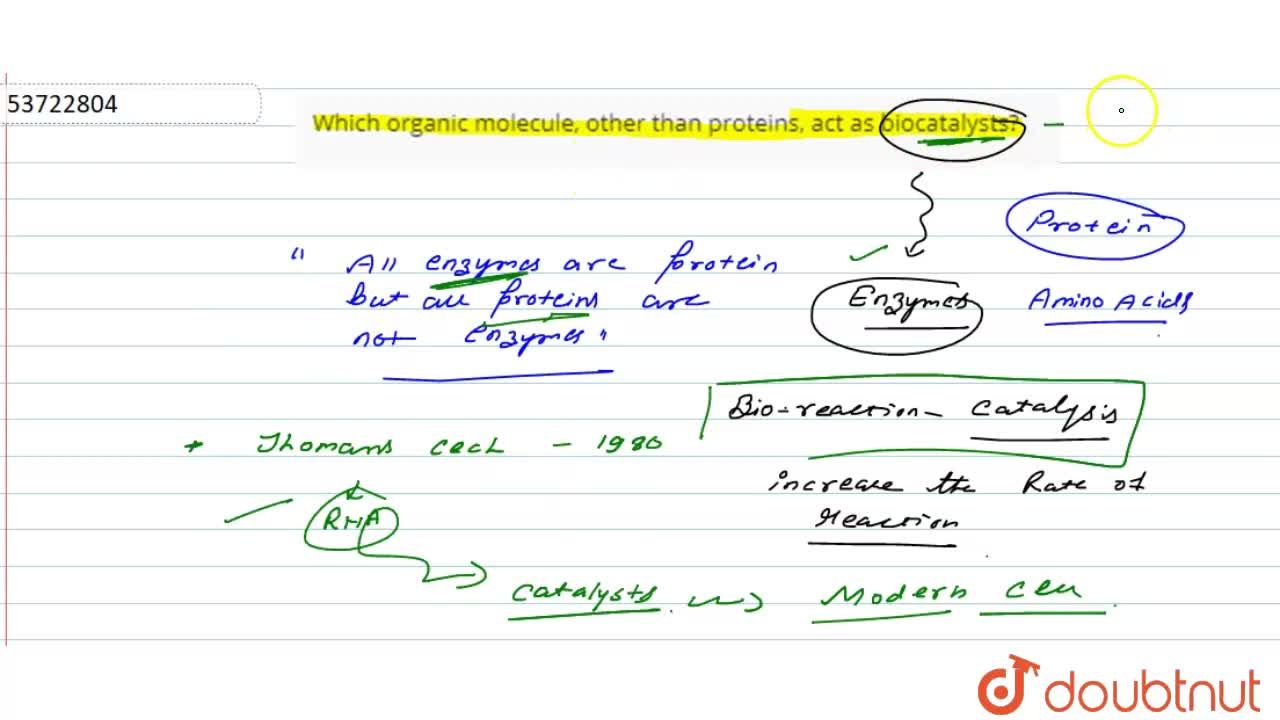 53722804
Which organic molecule, other than proteins, act as biocatalysts? -
Protein
" All enzymes are protein
but all proteins are
not enzymes"
Enzymes
Amino Acids
Bio-reaction- Catalysis
increase the Rate of
Reaction
* Thomans cech - 1980
RNA
Catalysts
Modern Cell
doubtnut